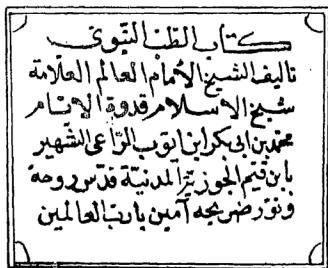 كتاب الطب النبوى
تاليف الشيخ الأمام العالم العلامة
شيخ الاسلام قدوة الانام
محمد بن ابى بكر ابن ايوب الزاعى الشهير
بابن قيم الجوزية المدنية قدس روحه
ونور ضريحه آمين يا رب العالمين